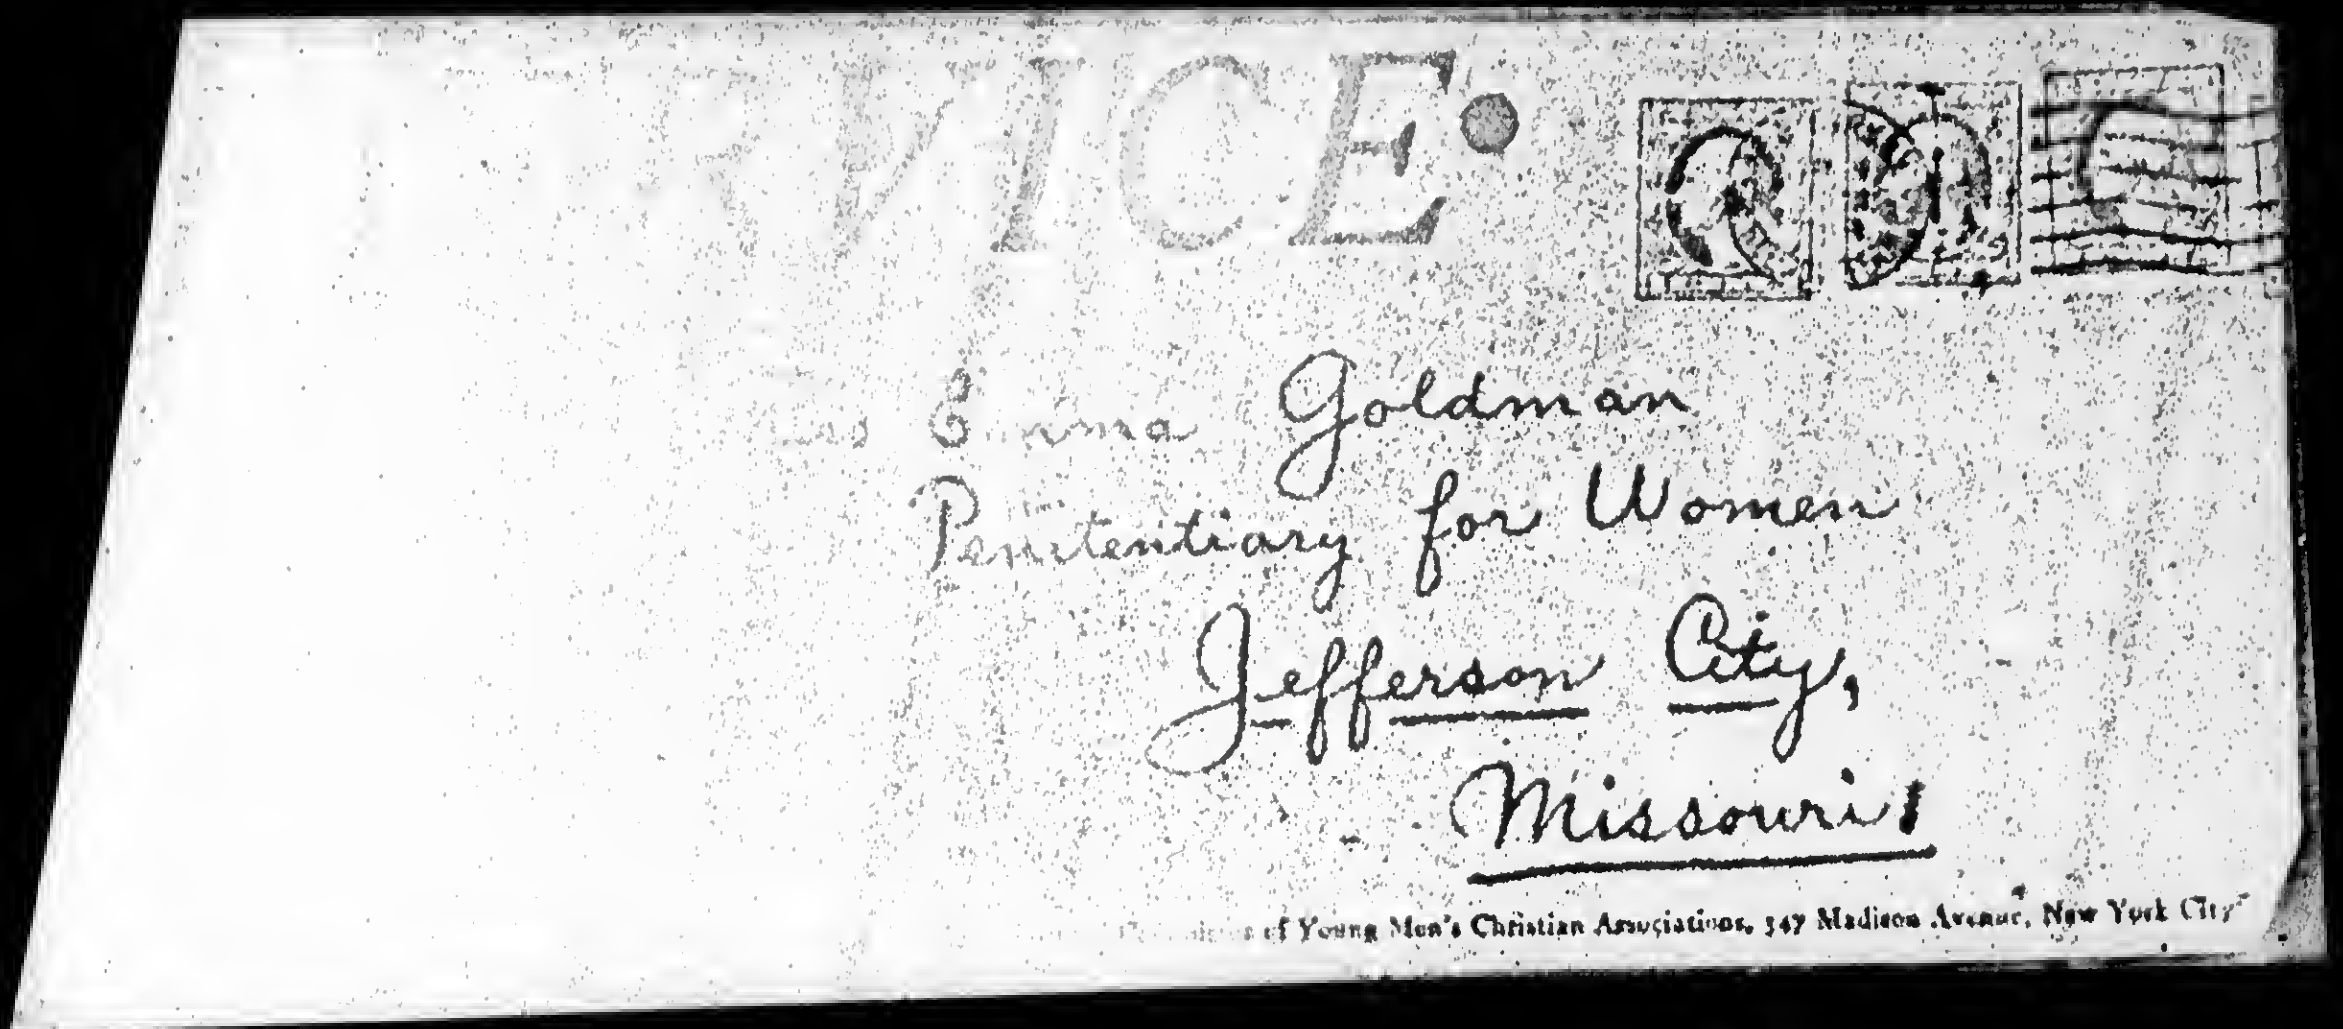 VICE
Emma Goldman
Penitentiary for Women
Jefferson City,
Missouri
of Young Men's Christian Associations, 347 Madison Avenue, New York City